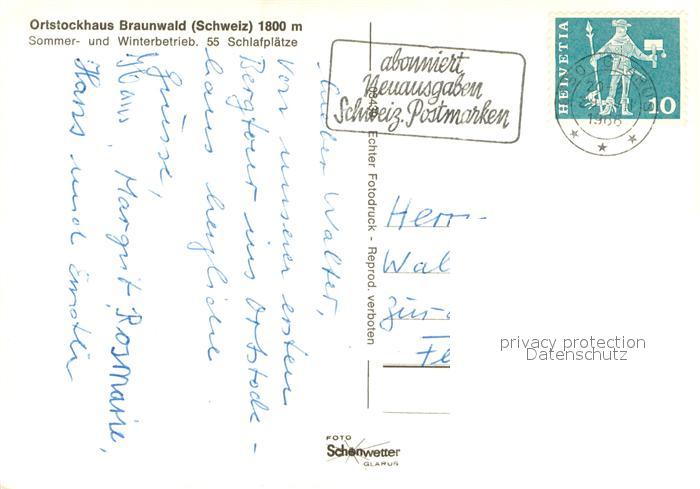 Ortstockhaus Braunwald (Schweiz) 1800 m
Sommer- und Winterbetrieb. 55 Schlafplätze
Lieber Walter,
Von unserer ersten
Bergtour ins Ortstock-
haus herzliche
Grüsse,
Margrit, Rosmarie,
Hans und
abonniert
Neuausgaben
Schweiz. Postmarken
HELVETIA
10
1968
Echter Fotodruck - Reprod. verboten
Herr
Wal
Zür
privacy protection
Datenschutz
FOTO
Schönwetter
GLARUS